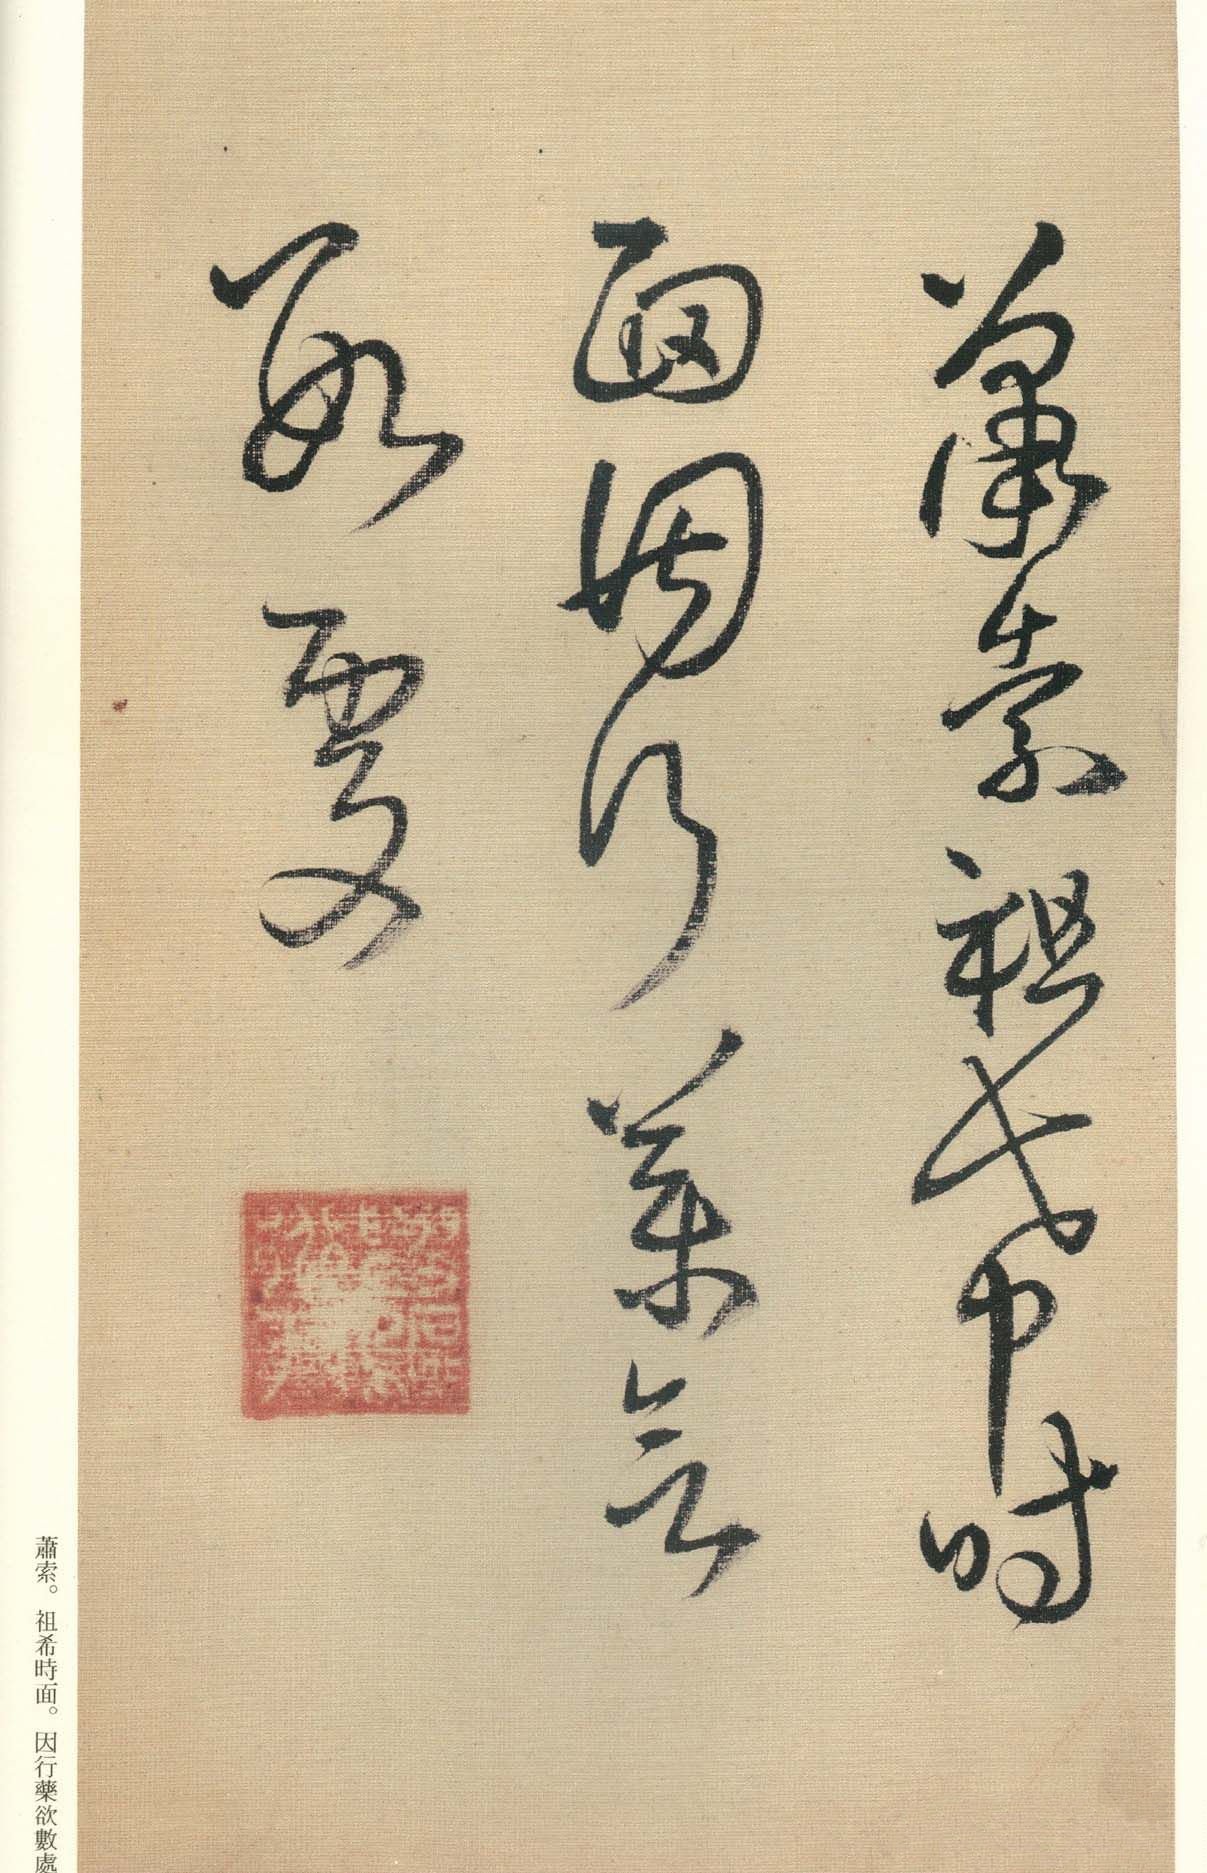 蕭索祖希時
面因行藥
數處
蕭索。祖希時面。因行藥欲數處